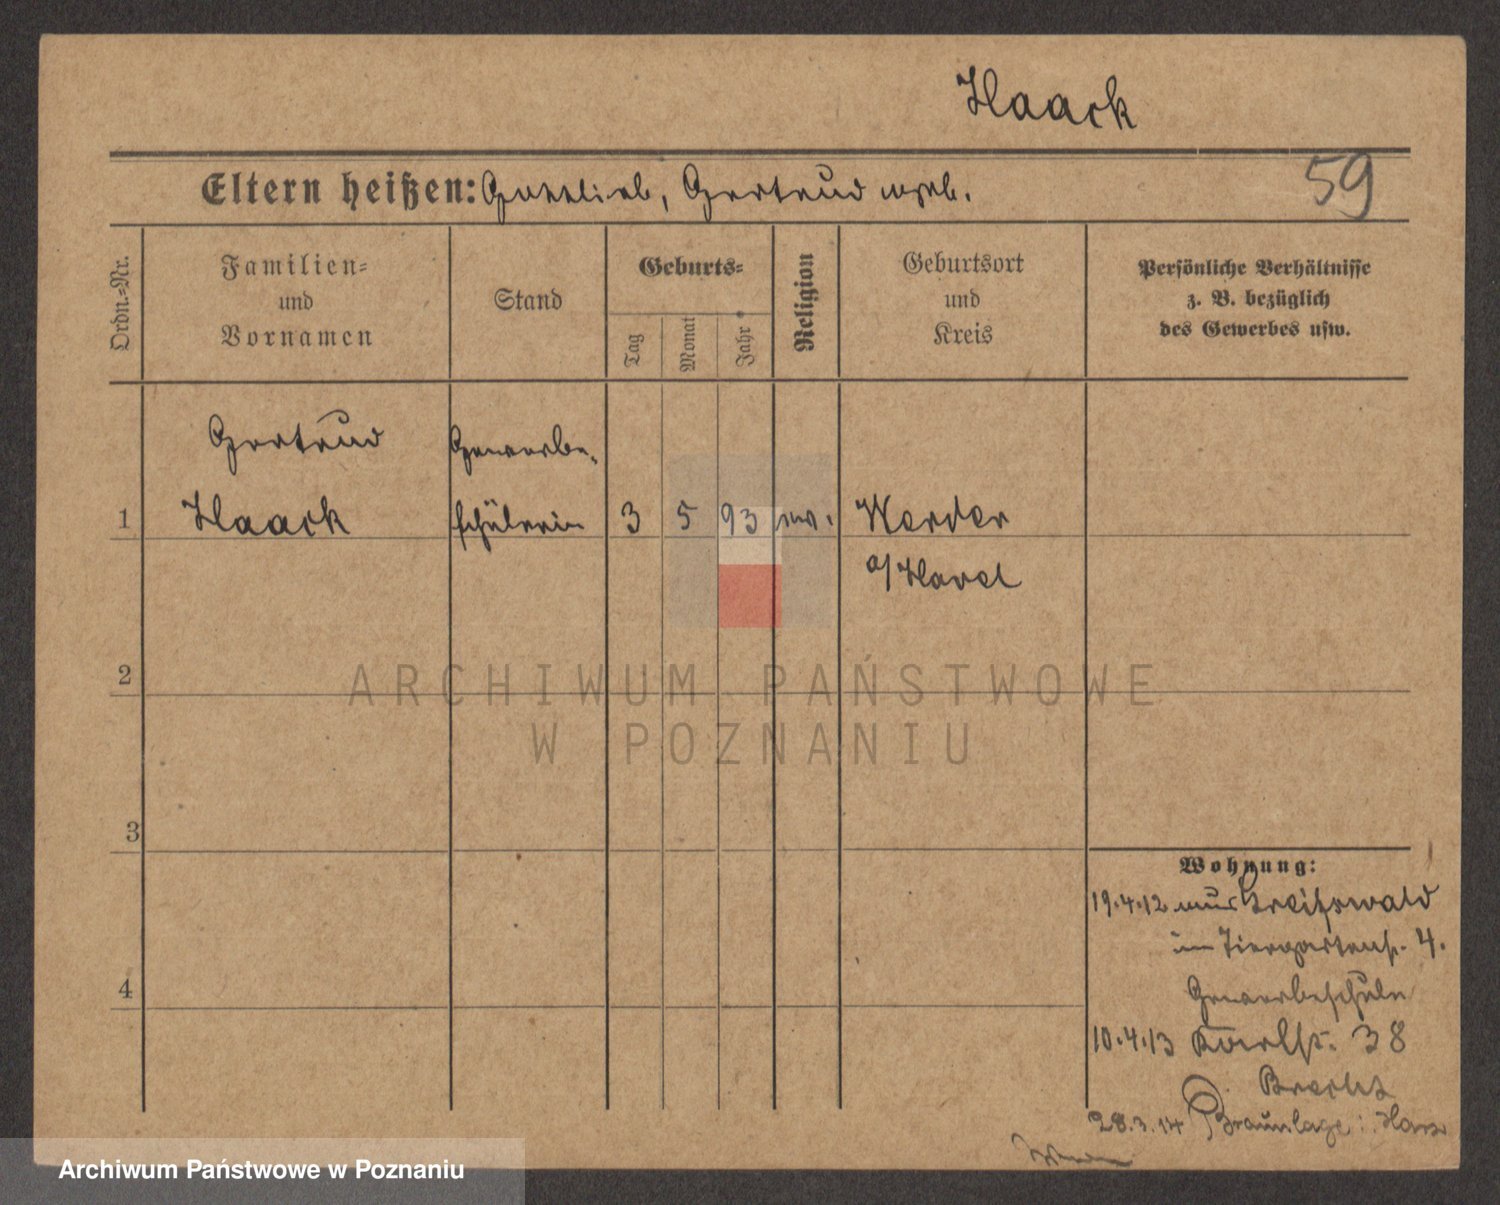 Haack
59
Eltern heißen: Gottlieb, Gertrud
Ordn.-Nr.
Familien-
und
Vornamen
Stand
Geburts-
Tag
Monat
Jahr
Religion
Geburtsort
und
Kreis
Persönliche Verhältnisse
z. B. bezüglich
des Gewerbes usw.
Gertrud Gewerbe-
1 Haack schülerin 3 5 93 ev. Werder
a/Havel
2
3
4
Wohnung:
19.4.12 aus Greifswald
in Tiergartenstr. 4.
Gewerbeschule
10.4.13 Karlstr. 38
28.3.14 Braunlage i. Harz
ARCHIWUM PAŃSTWOWE
W POZNANIU
Archiwum Państwowe w Poznaniu